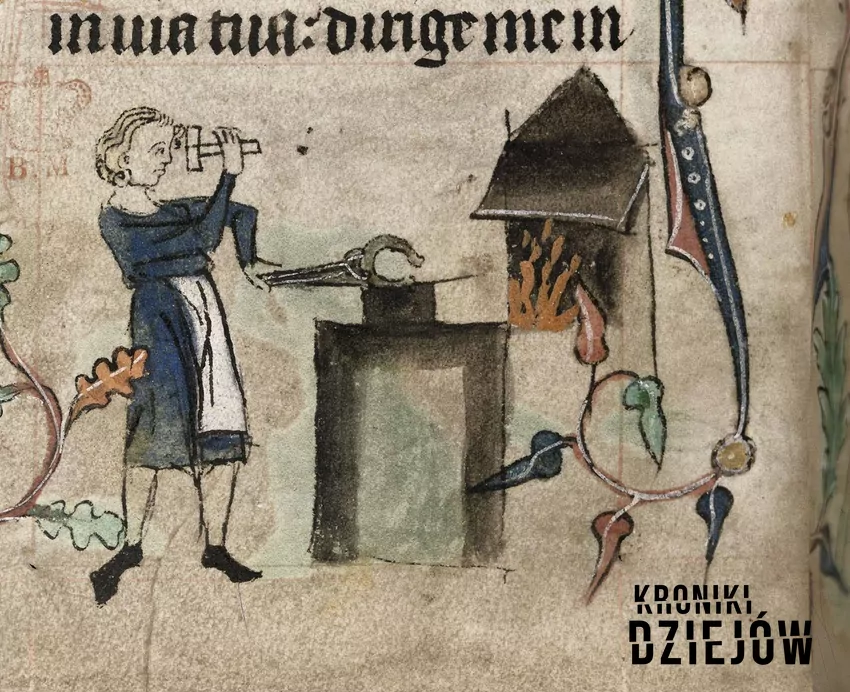 in uia tua: dirige me in
B. M
KRONIKI
DZIEJÓW